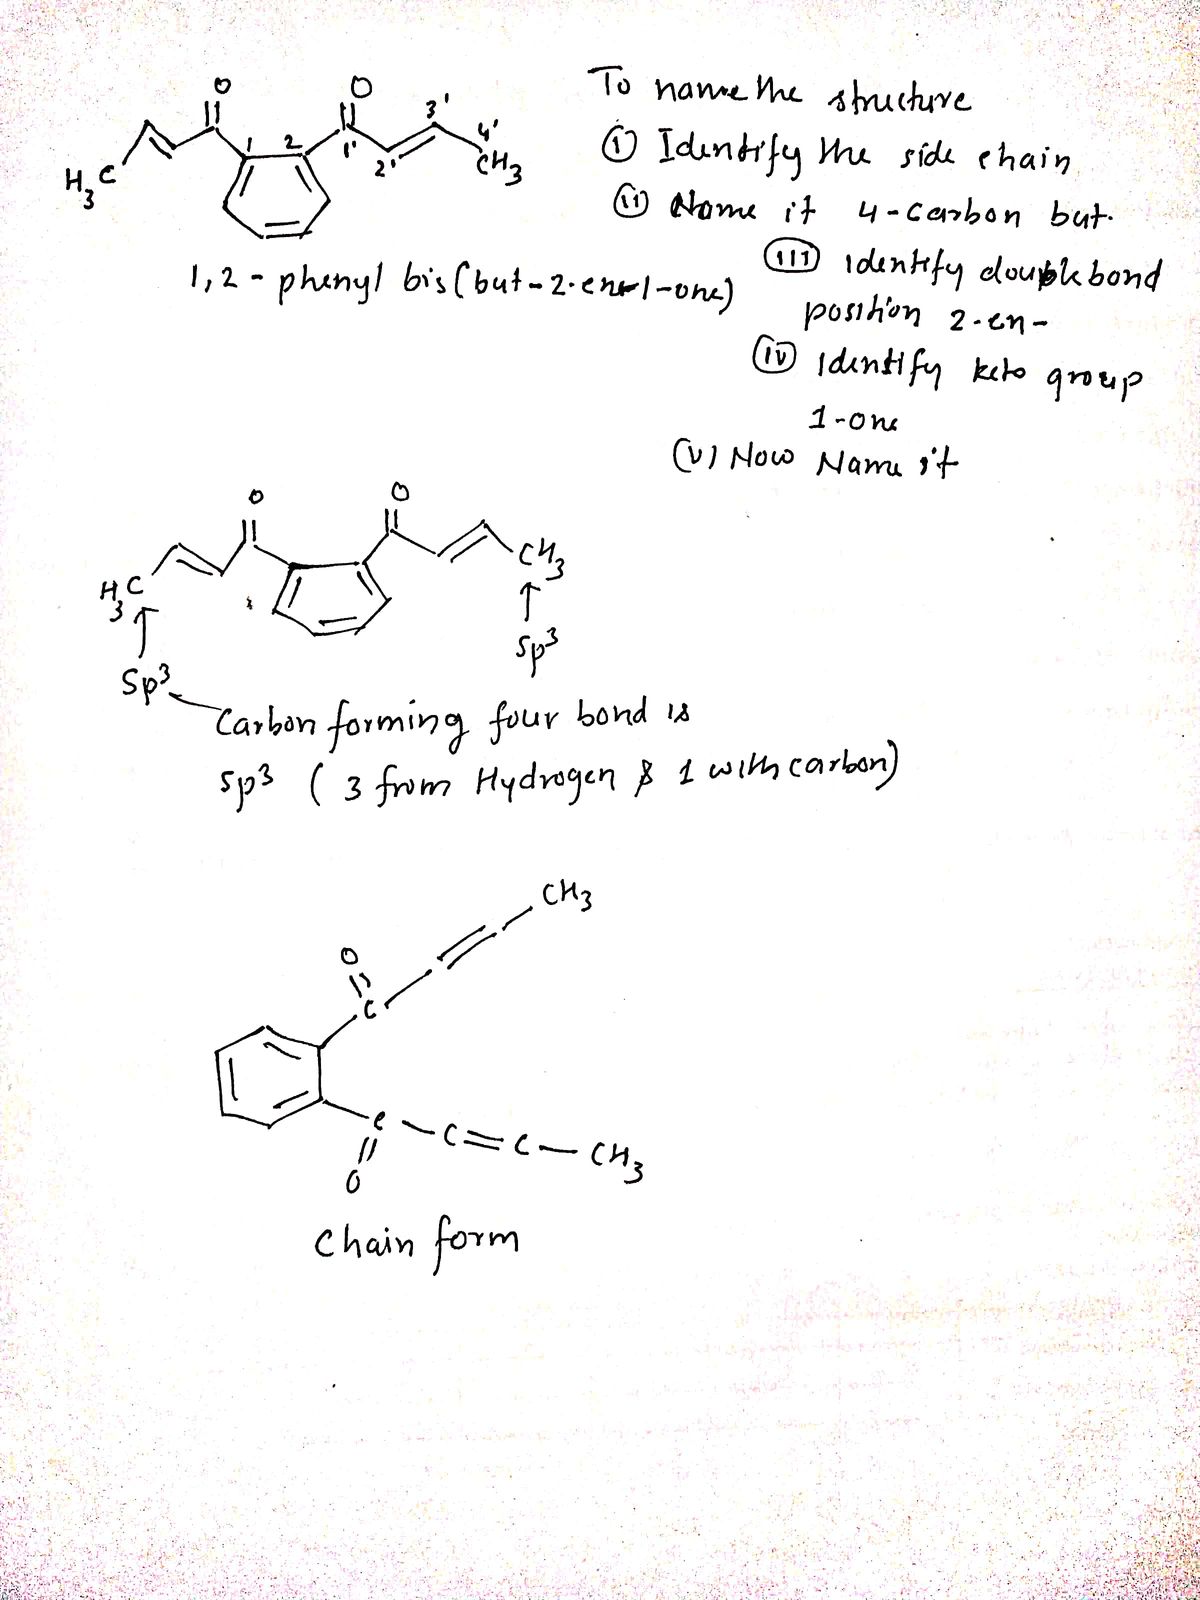 O O
1 2 1' 2' 3' 4'
H3C CH3
1,2 - phenyl bis(but-2-en-1-one)
To name the structure
(i) Identify the side chain
(ii) Name it 4-carbon but.
(iii) identify double bond
position 2-en-
(iv) identify keto group
1-one
(v) Now Name it
O O
H3C CH3
sp3
Sp3
Carbon forming four bond is
sp3 ( 3 from Hydrogen & 1 with carbon)
CH3
O
C
C - C = C - CH3
O
Chain form